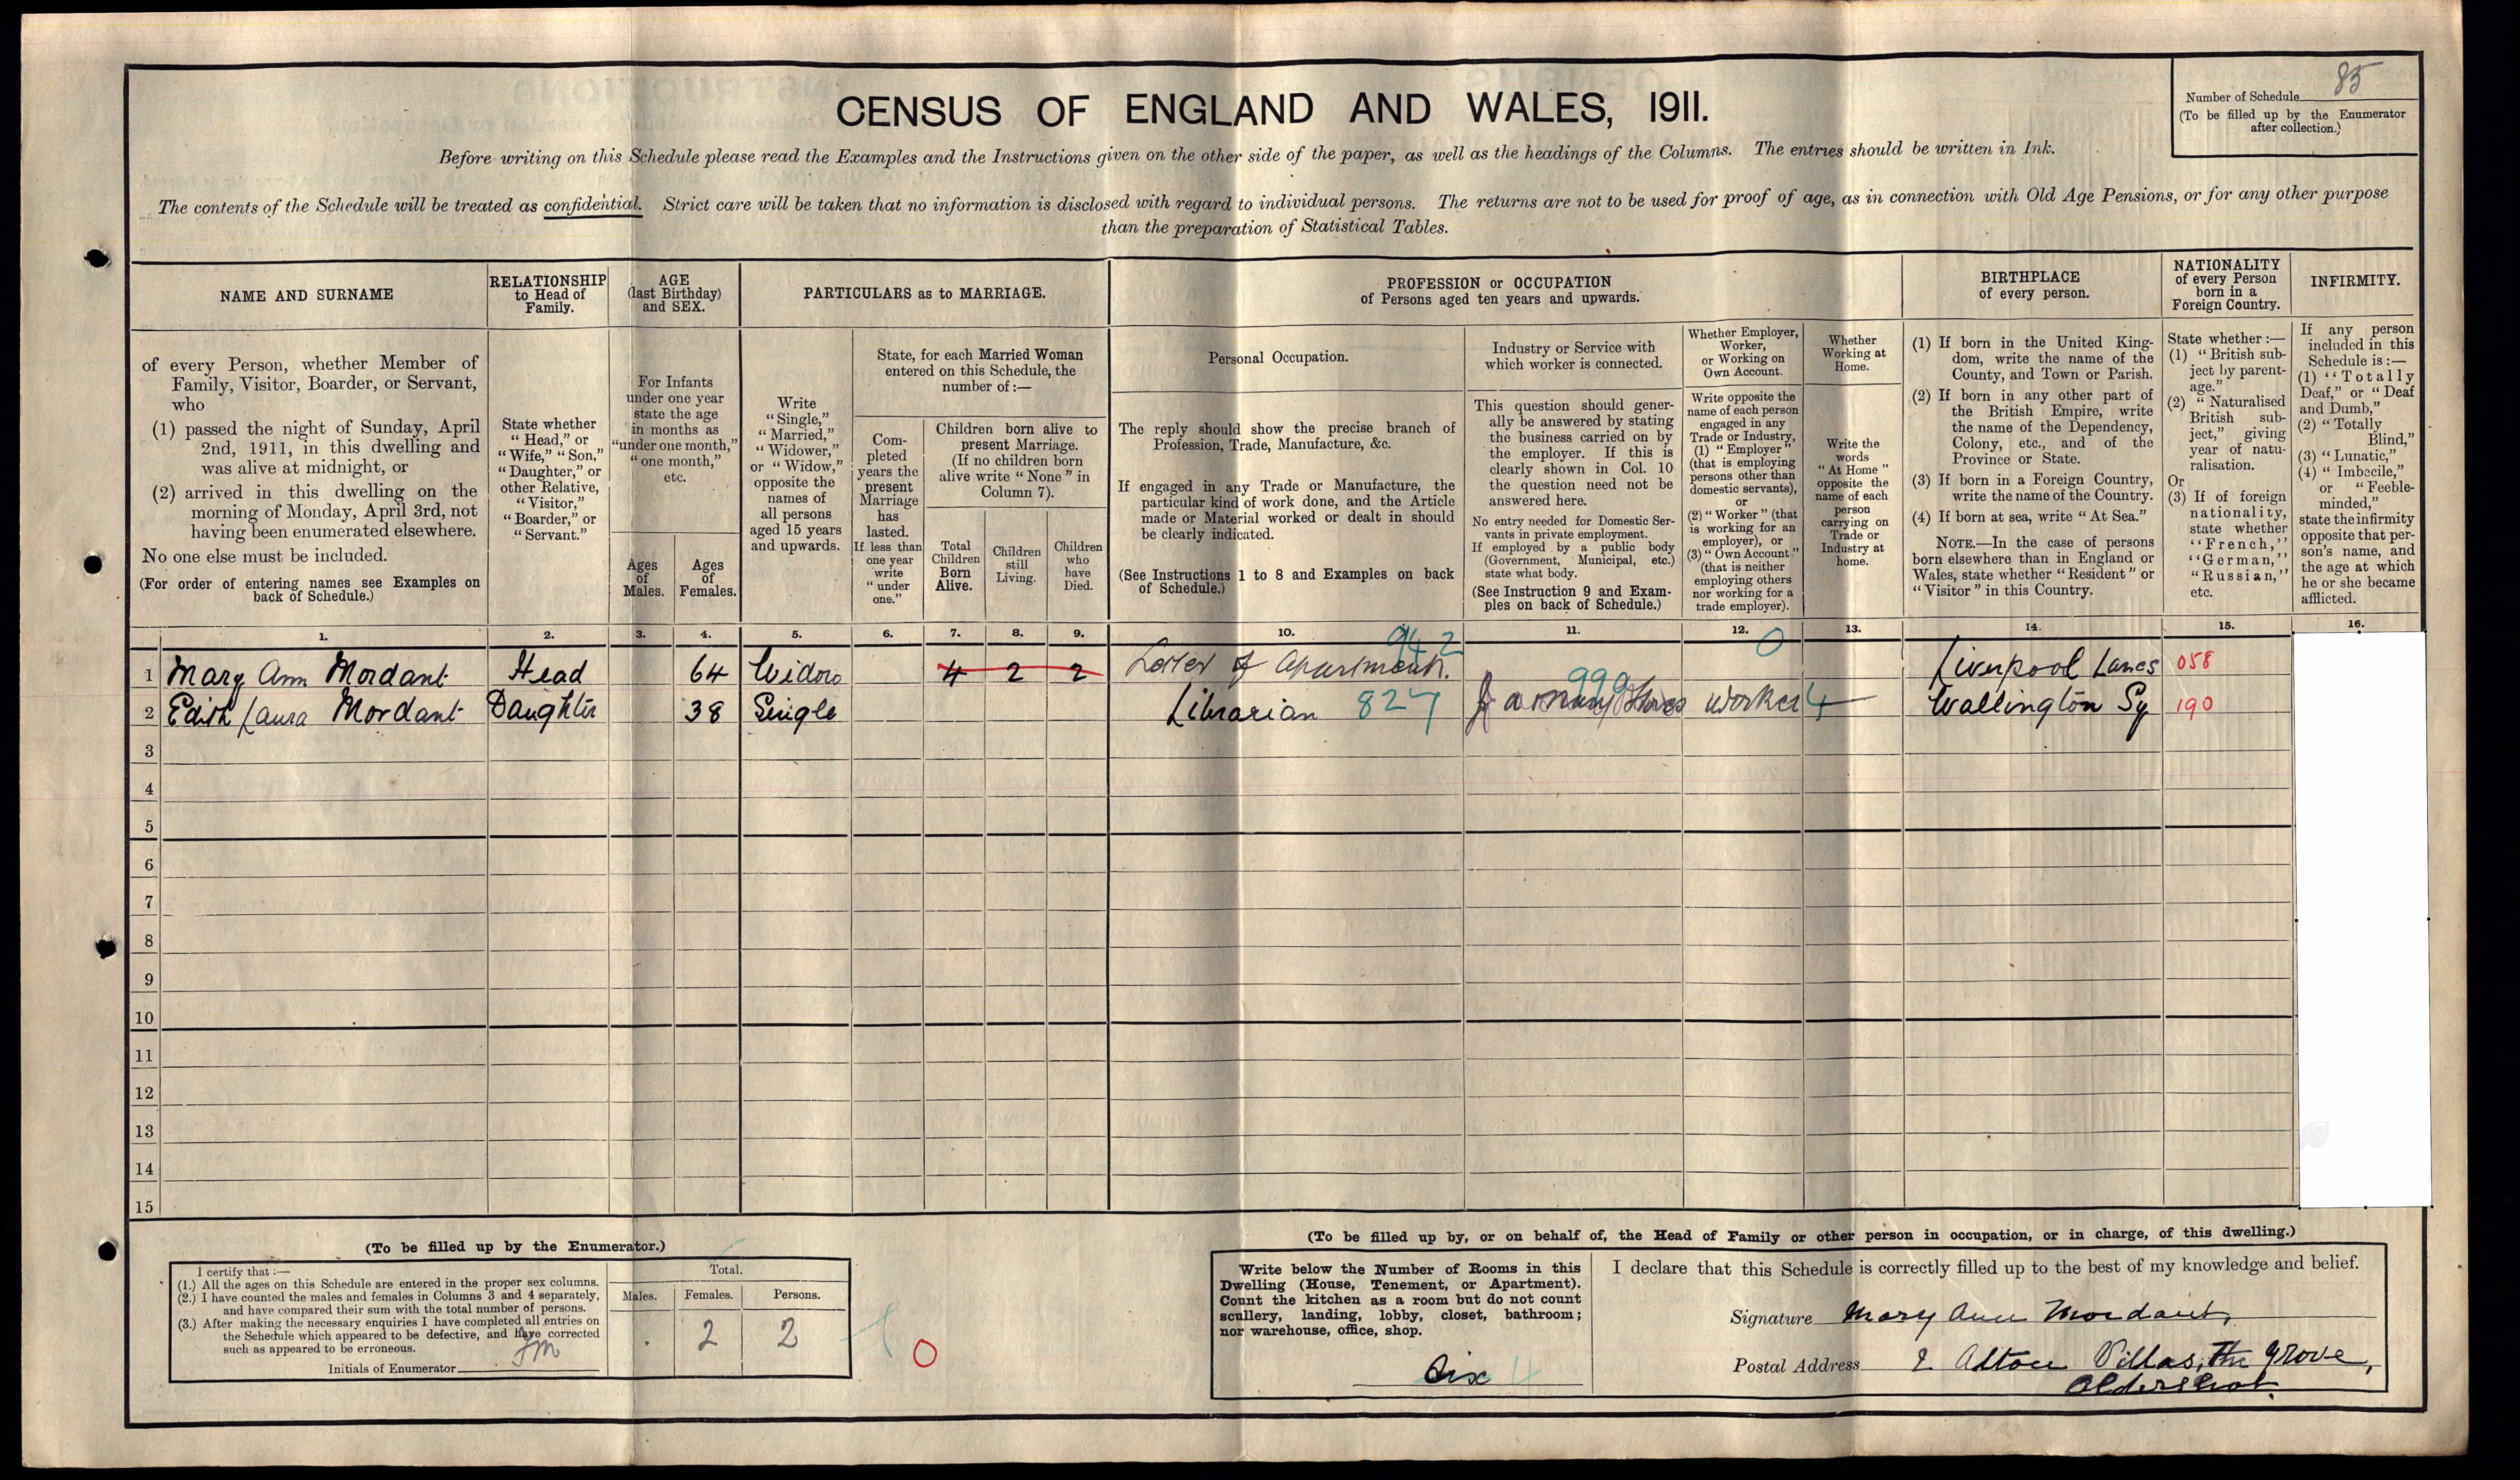 85
Number of Schedule
(To be filled up by the Enumerator
after collection.)
CENSUS OF ENGLAND AND WALES, 1911.
Before writing on this Schedule please read the Examples and the Instructions given on the other side of the paper, as well as the headings of the Columns. The entries should be written in Ink.
The contents of the Schedule will be treated as confidential. Strict care will be taken that no information is disclosed with regard to individual persons. The returns are not to be used for proof of age, as in connection with Old Age Pensions, or for any other purpose
than the preparation of Statistical Tables.
NAME AND SURNAME
RELATIONSHIP
to Head of
Family.
AGE
(last Birthday)
and SEX.
PARTICULARS as to MARRIAGE.
PROFESSION or OCCUPATION
of Persons aged ten years and upwards.
BIRTHPLACE
of every person.
NATIONALITY
of every Person
born in a
Foreign Country.
INFIRMITY.
of every Person, whether Member of
Family, Visitor, Boarder, or Servant,
who
(1) passed the night of Sunday, April
2nd, 1911, in this dwelling and
was alive at midnight, or
(2) arrived in this dwelling on the
morning of Monday, April 3rd, not
having been enumerated elsewhere.
No one else must be included.
(For order of entering names see Examples on
back of Schedule.)
State whether
"Head," or
"Wife," "Son,"
"Daughter," or
other Relative,
"Visitor,"
"Boarder," or
"Servant."
For Infants
under one year
state the age
in months as
"under one month,"
"one month,"
etc.
Ages
of
Males.
Ages
of
Females.
Write
"Single,"
"Married,"
"Widower,"
or "Widow,"
opposite the
names of
all persons
aged 15 years
and upwards.
State, for each Married Woman
entered on this Schedule, the
number of :—
Com-
pleted
years the
present
Marriage
has
lasted.
If less than
one year
write
"under
one."
Children born alive to
present Marriage.
(If no children born
alive write "None" in
Column 7).
Total
Children
Born
Alive.
Children
still
Living.
Children
who
have
Died.
Personal Occupation.
The reply should show the precise branch of
Profession, Trade, Manufacture, &c.
If engaged in any Trade or Manufacture, the
particular kind of work done, and the Article
made or Material worked or dealt in should
be clearly indicated.
(See Instructions 1 to 8 and Examples on back
of Schedule.)
Industry or Service with
which worker is connected.
This question should gener-
ally be answered by stating
the business carried on by
the employer. If this is
clearly shown in Col. 10
the question need not be
answered here.
No entry needed for Domestic Ser-
vants in private employment.
If employed by a public body
(Government, Municipal, etc.)
state what body.
(See Instruction 9 and Exam-
ples on back of Schedule.)
Whether Employer,
Worker,
or Working on
Own Account.
Write opposite the
name of each person
engaged in any
Trade or Industry,
(1) "Employer"
(that is employing
persons other than
domestic servants),
or
(2) "Worker" (that
is working for an
employer), or
(3) "Own Account"
(that is neither
employing others
nor working for a
trade employer).
Whether
Working at
Home.
Write the
words
"At Home"
opposite the
name of each
person
carrying on
Trade or
Industry at
home.
(1) If born in the United King-
dom, write the name of the
County, and Town or Parish.
(2) If born in any other part of
the British Empire, write
the name of the Dependency,
Colony, etc., and of the
Province or State.
(3) If born in a Foreign Country,
write the name of the Country.
(4) If born at sea, write "At Sea."
NOTE.—In the case of persons
born elsewhere than in England or
Wales, state whether "Resident" or
"Visitor" in this Country.
State whether :—
(1) "British sub-
ject by parent-
age."
(2) "Naturalised
British sub-
ject," giving
year of natu-
ralisation.
Or
(3) If of foreign
nationality,
state whether
"French,"
"German,"
"Russian,"
etc.
If any person
included in this
Schedule is :—
(1) "Totally
Deaf," or "Deaf
and Dumb,"
(2) "Totally
Blind,"
(3) "Lunatic,"
(4) "Imbecile,"
or "Feeble-
minded,"
state the infirmity
opposite that per-
son's name, and
the age at which
he or she became
afflicted.
1. 2. 3. 4. 5. 6. 7. 8. 9. 10. 11. 12. 13. 14. 15. 16.
942 0
1 Mary Ann Mordant Head 64 Widow 4 2 2 Letter of Apartments. Liverpool Lancs 058
999
2 Edith Laura Mordant Daughter 38 Single Librarian 827 Worker 4 Wallington Sy 190
3
4
5
6
7
8
9
10
11
12
13
14
15
(To be filled up by the Enumerator.)
I certify that :—
(1.) All the ages on this Schedule are entered in the proper sex columns.
(2.) I have counted the males and females in Columns 3 and 4 separately,
and have compared their sum with the total number of persons.
(3.) After making the necessary enquiries I have completed all entries on
the Schedule which appeared to be defective, and have corrected
such as appeared to be erroneous.
Initials of Enumerator
Total.
Males. Females. Persons.
2 2
0
(To be filled up by, or on behalf of, the Head of Family or other person in occupation, or in charge, of this dwelling.)
Write below the Number of Rooms in this
Dwelling (House, Tenement, or Apartment).
Count the kitchen as a room but do not count
scullery, landing, lobby, closet, bathroom;
nor warehouse, office, shop.
Six 4
I declare that this Schedule is correctly filled up to the best of my knowledge and belief.
Signature Mary Ann Mordant,
Postal Address Alton Villas, The Grove,
Aldershot.